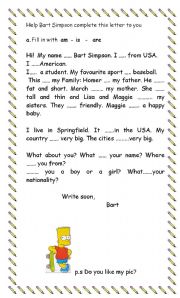 Help Bart Simpson complete this letter to you
a. Fill in with am - is - are
Hi! My name ….. Bart Simpson. I ….. from USA.
I …..American.
I….. a student. My favourite sport ….. baseball.
This ….. my Family: Homer ….. my father. He …..
fat and short. March ….. my mother. She …..
tall and thin and Lisa and Maggie ……. my
sisters. They ….. friendly. Maggie ….. a happy
baby.
I live in Springfield. It …..in the USA. My
country ….. very big. The cities ………very big.
What about you? What ….. your name? Where
….. you from?
……. you a boy or a girl? What……your
nationality?
Write soon,
Bart
p.s Do you like my pic?